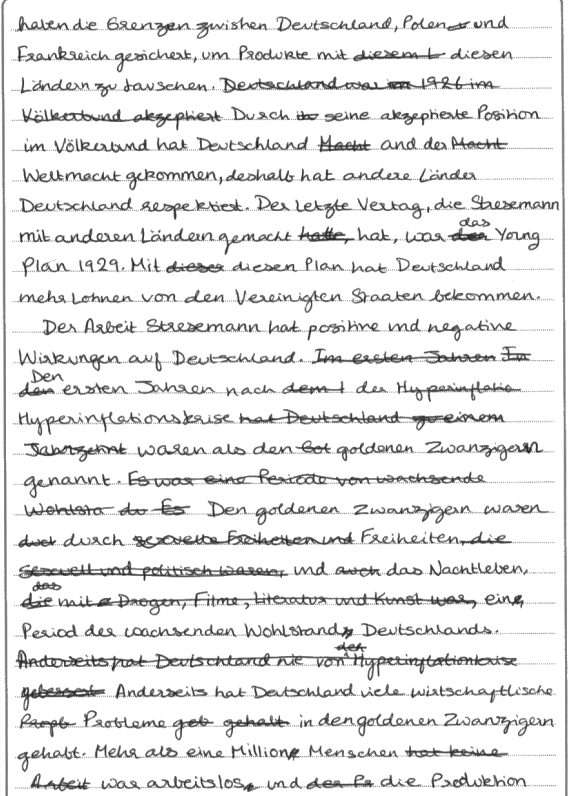 haben die Grenzen zwishen Deutschland, Polen und
Frankreich gesichert, um Produkte mit diesem t diesen
Ländern zu tauschen. Deutschland war in 1926 im
Völkerbund akzeptiert Durch its seine akzeptierte Position
im Völkerbund hat Deutschland Macht and der Macht
Weltmacht gekommen, deshalb hat andere Länder
Deutschland respektiert. Der letzte Vertag, die Stresemann
mit anderen Ländern gemacht hatte, hat, war der das Young
Plan 1929. Mit dieser diesen Plan hat Deutschland
mehr Lohnen von den Vereinigten Staaten bekommen.
Der Arbeit Stresemann hat positive und negative
Wirkungen auf Deutschland. Im ersten Jahren In
den Den ersten Jahren nach dem t der Hyperinflatio
Hyperinflationskrise hat Deutschland zu einem
Jahrzehnt waren als den Gol goldenen Zwanzigern
genannt. Es war eine Periode von wachsende
Wohlsta du Es Den goldenen Zwanzigern waren
durch sexuelle Freiheiten und Freiheiten, die
sexuell und politisch waren, und auch das Nachtleben,
die das mit Drogen, Filme, Literatur und Kunst war, eine
Period der wachsenden Wohlstand Deutschlands.
Anderseits hat Deutschland nie von der Hyperinflationkrise
Anderseits hat Deutschland viele wirtschaftlische
Probl Probleme geb gehabt in den goldenen Zwanzigern
gehabt. Mehr als eine Million Menschen hat keine
Arbeit war arbeitslos, und der Pr die Produktion